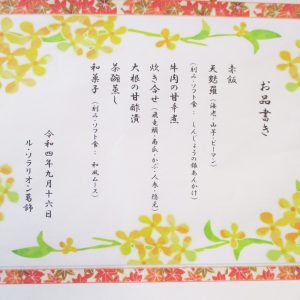 お品書き
赤飯
天麩羅（海老・山芋・ピーマン）
（刻み・ソフト食：しんじょうの銀あんかけ）
牛肉の甘辛煮
炊き合せ（飛竜頭・南瓜・かぶ・人参・隠元）
大根の甘酢漬
茶碗蒸し
和菓子（刻み・ソフト食：和風ムース）
令和四年九月十六日
ル・ソラリオン葛飾